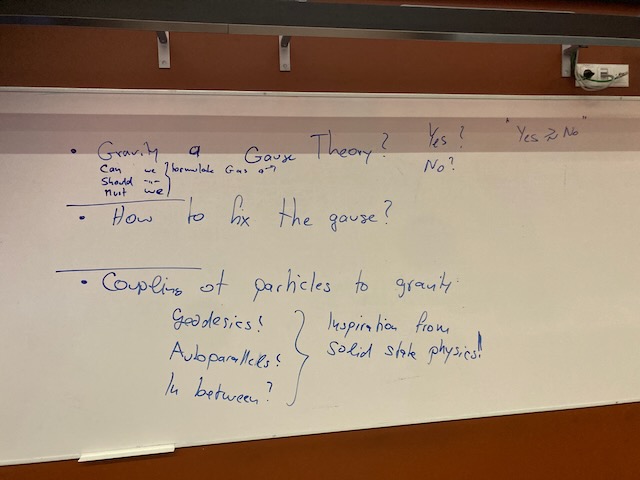 • Gravity a Gause Theory? Yes? "Yes ≈ No"
No?
Can we } formulate G as a
Should —
Must we
• How to fix the gause?
• Coupling of particles to gravity.
Geodesics! } Inspiration from
Autoparallels! solid state physics!
In between?